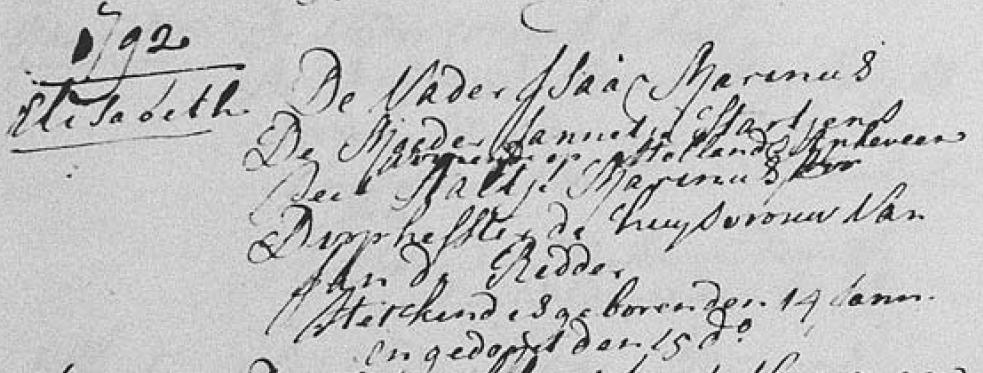 1792
Elisabeth
De Vader Isaac Marinus
De Moeder Jannetje Hartjens
woonende op Hollands Ankeveen
Peet Aaltje Marinus voor
Doophefster de huysvrouw van
Jan de Ridder
Het kind is geboren den 14 Jann.
en gedoopt den 15 do